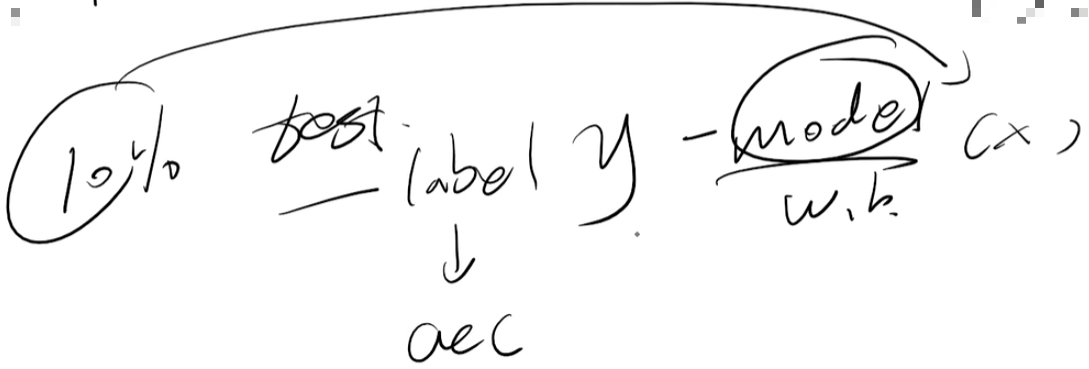 10% test label y - model (x)
w.b.
aec